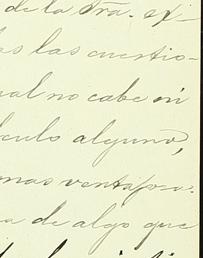 de la Sra. ex-
las las cuestio-
ual no cabe ni
culo alguno,
mas ventajoso.
a de algo que